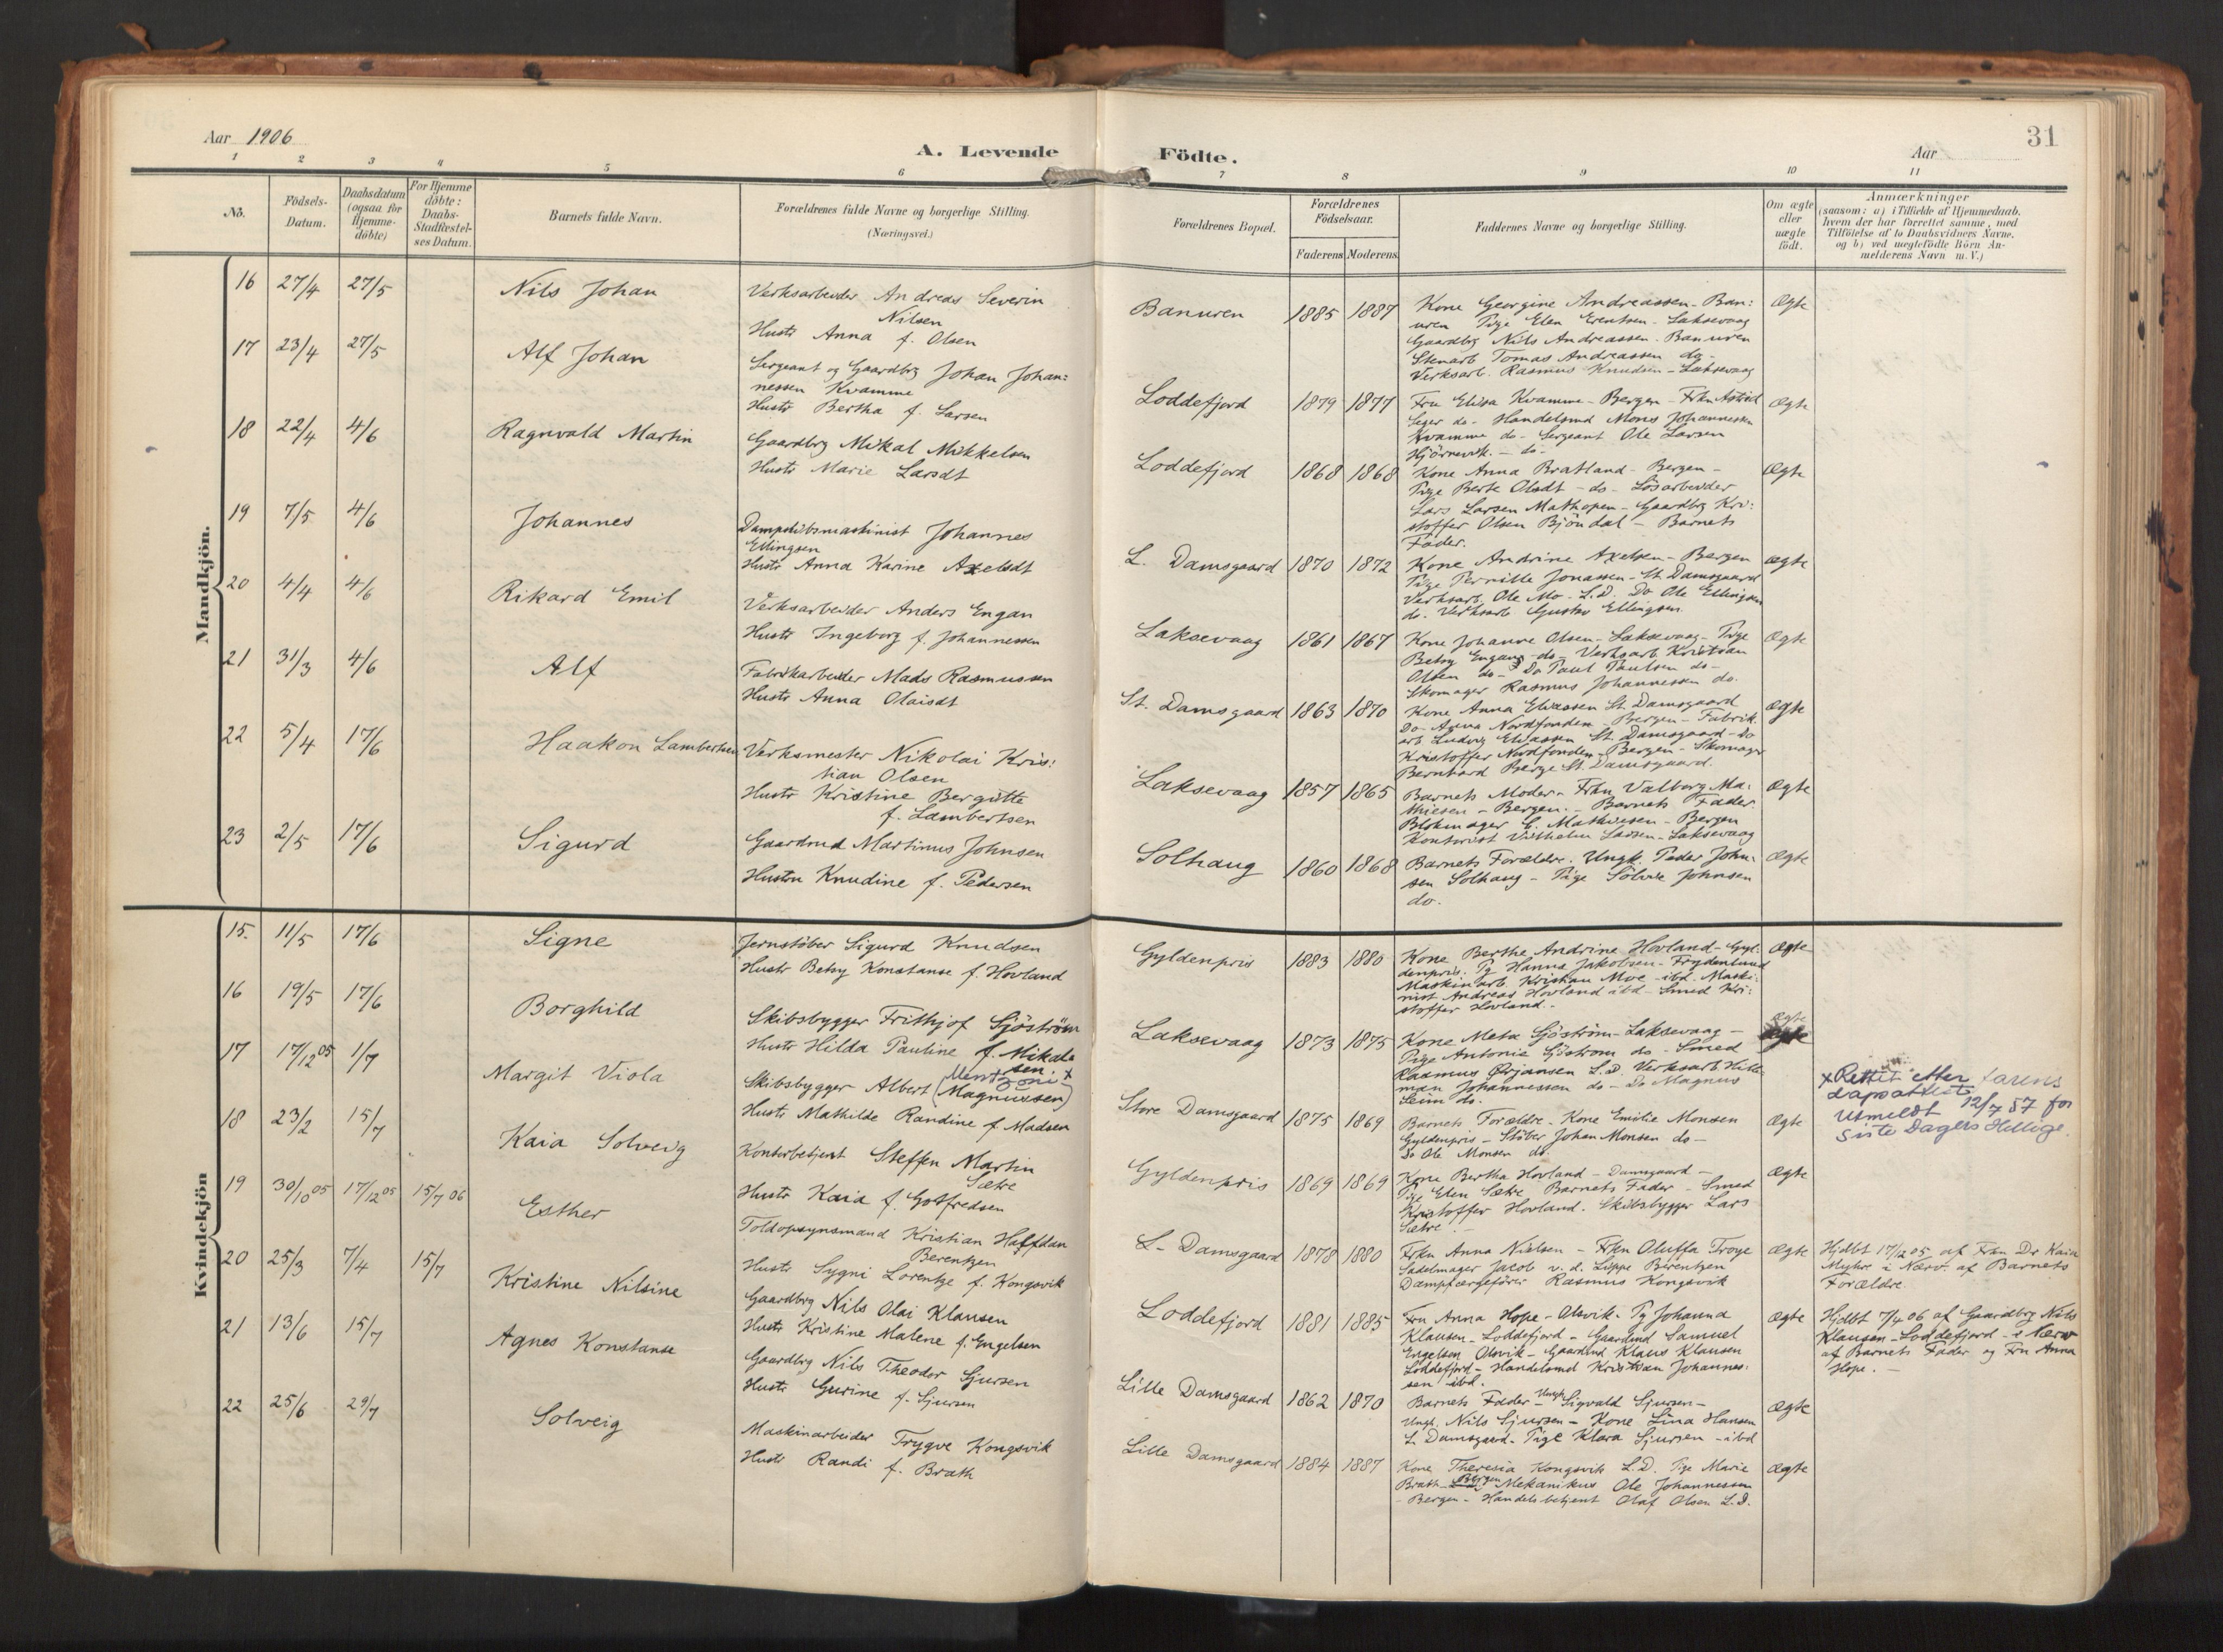 Aar 1906
A. Levende
1 2 3 4 5 6
No.
Födsels-
Datum.
Daabsdatum
(ogsaa for
Hjemme-
döbte)
For Hjemme
döbte:
Daabs-
Stadfæstel-
ses Datum.
Barnets fulde Navn.
Forældrenes fulde Navne og borgerlige Stilling.
(Næringsvei.)
Mandkjön.
16 27/4 27/5 Nils Johan
Verksarbeider Andreas Severin
Nilsen
Hustr Anna f. Olsen
17 23/4 27/5 Alf Johan
Sergeant og Gaardbrg Johan Johan:
nessen Kvamme
Hustr Bertha f. Larsen
18 22/4 4/6 Ragnvald Martin
Gaardbrg Mikal Mikkelsen
Hustr Marie Larsdt
19 7/5 4/6 Johannes
Dampskibsmaskinist Johannes
Ellingsen
Hustr Anna Karine Axelsdt
20 4/4 4/6 Rikard Emil
Verksarbeider Anders Engan
Hustr Ingeborg f. Johannessen
21 31/3 4/6 Alf
Fabrikarbeider Mads Rasmussen
Hustr Anna Olaisdt
22 5/4 17/6 Haakon Lambertsen
Verksmester Nikolai Kris:
tian Olsen
Hustr Kristine Bergitte
f. Lambertsen
23 2/5 17/6 Sigurd
Gaardmd Martinus Johnsen
Hustru Knudine f. Pedersen
Kvindekjön
15. 11/5 17/6 Signe
Jernstöber Sigurd Knudsen
Hustr Betsy Konstanse f. Hovland
16 19/5 17/6 Borghild
Skibsbygger Frithjof Sjöström
Hustr Hilda Pauline f. Mikal
sen.
17 17/12 05 1/7 Margit Viola
Mentzoni x
Skibsbygger Albert (Magnussen)
Hustr Mathilde Randine f. Madsen
18 23/2 15/7 Kaia Solveig
Kontorbetjent Steffen Martin
Sætre
Hustr Kaia f. Gotfredsen
19 30/10 05 17/12 05 15/7 06 Esther
Toldopsynsmand Kristian Halfdan
Berentzen
Hustr Sygni Lorentze f. Kongsvik
20 25/3 7/4 15/7 Kristine Nilsine
Gaardbrg Nils Olai Klausen
Hustr Kristine Malene f. Engelsen
21 13/6 15/7 Agnes Konstanse
Gaardbrg Nils Theodor Sjursen
Hustr Gurine f. Sjursen
22 25/6 29/7 Solveig
Maskinarbeider Trygve Kongsvik
Hustr Randi f. Brath
31
Födte.
Aar
7 8 9 10 11
Forældrenes Bopæl.
Forældrenes
Födselsaar.
Faderens Moderens
Faddernes Navne og borgerlige Stilling.
Om ægte
eller
uægte
födt.
Anmærkninger
(saasom: a) i Tilfælde af Hjemmedaab,
hvem der har forrettet samme, med
Tilföielse af to Daabsvidners Navne,
og b) ved uægtefödte Börn An-
melderens Navn m. V.)
Banuren 1885 1887
Kone Georgine Andreassen - Ban: Ægte
uren Pige Elen Erentsen - Laksevaag
Gaardbrg Nils Andreassen. Banuren
Stenarb Tomas Andreassen do -
Verksarb. Rasmus Knudsen - Laksevaag
Loddefjord 1879 1877
Fru Elisa Kvamme - Bergen - Frkn Astrid Ægte
Seger do - Handelsmd Mons Johannessen
Kvamme do - Sergeant Ole Larsen
Hjörnevik. - do -
Loddefjord 1868 1868
Kone Anna Bratland - Bergen - Ægte
Pige Berte Olsdt - do - Lösarbeider
Lars Larsen Mathopen - Gaardbrg Kri:
stoffer Olsen Bjöndal - Barnets
Fader.
L. Damsgaard 1870 1872
Kone Andrine Axelsen - Bergen Ægte
Pige Pernille Jonassen - St. Damsgaard
Verksarb. Ole Mo - L.D. Do Ole Ellingsen
do. Verksarb. Gustav Ellingsen.
Laksevaag 1861 1867
Kone Johanne Olsen - Laksevaag - Pige Ægte
Betsy Engan - do - Verksarb Kristian
Olsen do - Do Paul Paulsen do -
Skomager Rasmus Johannessen do.
St. Damsgaard 1863 1870
Kone Anna Eliassen St. Damsgaard Ægte
Do Anna Nordfonden - Bergen - Fabrik
arb Ludvig Eliassen St. Damsgaard - Do
Kristoffer Nordfonden - Bergen - Skomager
Bernhard Berge St. Damsgaard.
Laksevaag 1857 1865
Barnets Moder - Frkn Valborg Ma: Ægte
thiesen - Bergen. - Barnets Fader.
Blokmager C. Mathiesen - Bergen
Kontorist Vilhelm Larsen - Laksevaag
Solhaug 1860 1868
Barnets Forældre. Ungk. Peder John: Ægte
sen Solhaug - Pige Sölvie Johnsen
do.
Gyldenpris 1883 1880
Kone Berthe Andrine Hovland - Gyl: Ægte
denpris. Pg Hanna Jakobsen - Frydenlund
Maskinarb. Kristian Moe - ibd. Maski:
nist Andreas Hovland ibd - Smed Kri:
stoffer Hovland.
Laksevaag 1873 1875
Kone Meta Sjöström - Laksevaag - Ægte
Pige Antonie Sjöström do - Smed
Rasmus Örjansen L.D. Verksarb Hille
man Johannessen do - Do Magnus
Seim do.
Store Damsgaard 1875 1869
Barnets Forældre - Kone Emilie Monsen Ægte
Gyldenpris - Stöber Johan Monsen do -
Do Ole Monsen do.
x Rettet etter farens
dapsattest
Utmeldt 12/7 57 for
Siste Dagers Hellige.
Gyldenpris 1869 1869
Kone Bertha Hovland - Damsgaard - Ægte
Pige Elen Sætre Barnets Fader - Smed
Kristoffer Hovland. Skibsbygger Lars
Sætre. -
L- Damsgaard 1878 1880
Frkn Anna Nielsen - Frkn Oluffa Troye Ægte
Sadelmager Jacob v. d. Lippe Berentzen
Dampfærgeförer Rasmus Kongsvik
Hjdbt 17/12 05 af Frkn Dr Kaia
Myhre i Nærv. af Barnets
Forældre.
Loddefjord 1881 1885
Fru Anna Hope - Olsvik - Pg Johanna Ægte
Klausen - Loddefjord - Gaardmd Samuel
Engelsen Olsvik - Gaardmd Klaus Klausen
Loddefjord - Handelsmd Kristian Johannes:
sen ibd.
Hjdbt 7/4 06 af Gaardbrg Nils
Klausen - Loddefjord - i Nærv
af Barnets Fader og Fru Anna
Hope. -
Lille Damsgaard 1862 1870
Barnets Fader - Ungk Sigvald Sjursen - Ægte
Ungk. Nils Sjursen - Kone Lina Hansen
L. Damsgaard - Pige Klara Sjursen - ibd
Lille Damsgaard 1884 1887
Kone Theresia Kongsvik L.D. Pige Marie Ægte
Brath - Bergen Mekanikus Ole Johannessen
- Bergen - Handelsbetjent Olaf Olsen L.D.